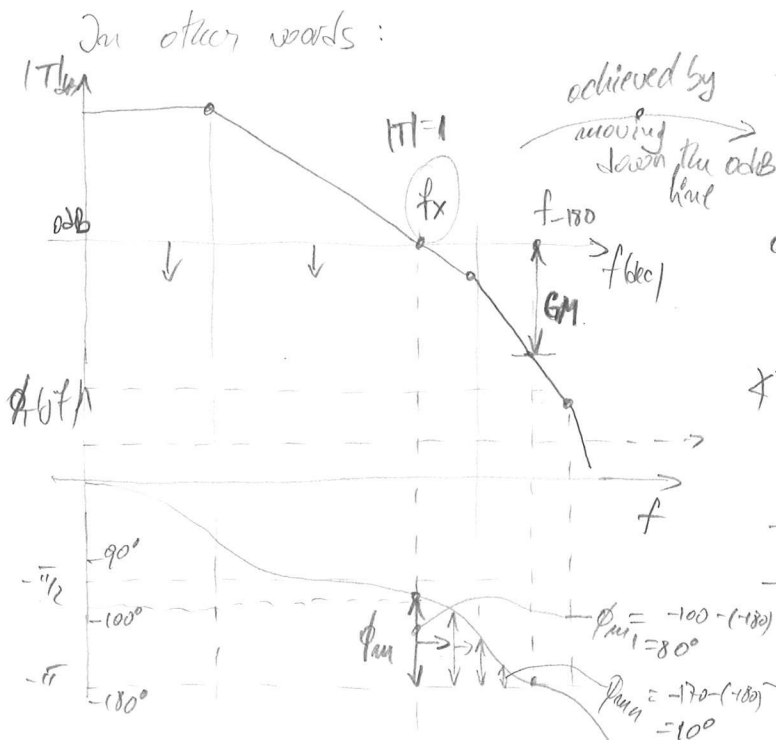 In other words :
|T|dB
achieved by
moving
down the 0dB
line
|T|=1
fx
f-180
0dB
f(dec)
GM
f
-90°
-π/2
-100°
ϕm
-π
-180°
ϕm1 = -100-(-180)
=80°
= -170-(-180)
=10°